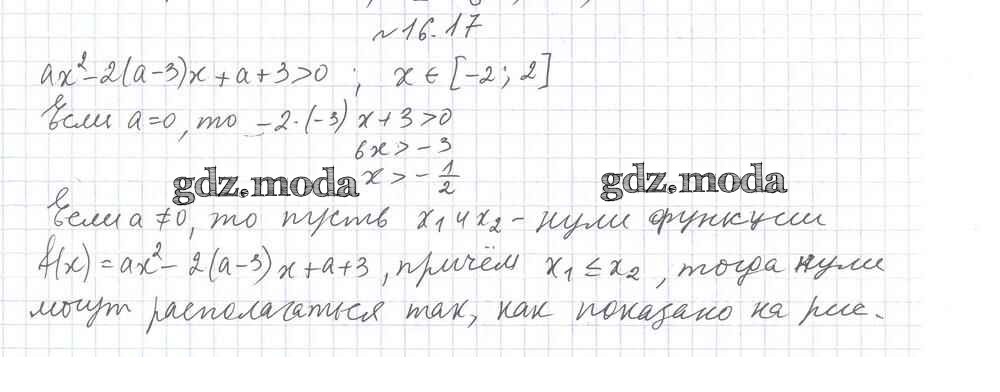 ~16.17
ax²-2(a-3)x+a+3>0 ; x ∈ [-2; 2]
Если a=0, то -2·(-3)x+3>0
6x>-3
x>-1/2
gdz.moda gdz.moda
Если a≠0, то пусть x₁ и x₂ - нули функции
f(x)=ax²-2(a-3)x+a+3, причём x₁≤x₂, тогда нули
могут располагаться так, как показано на рис.